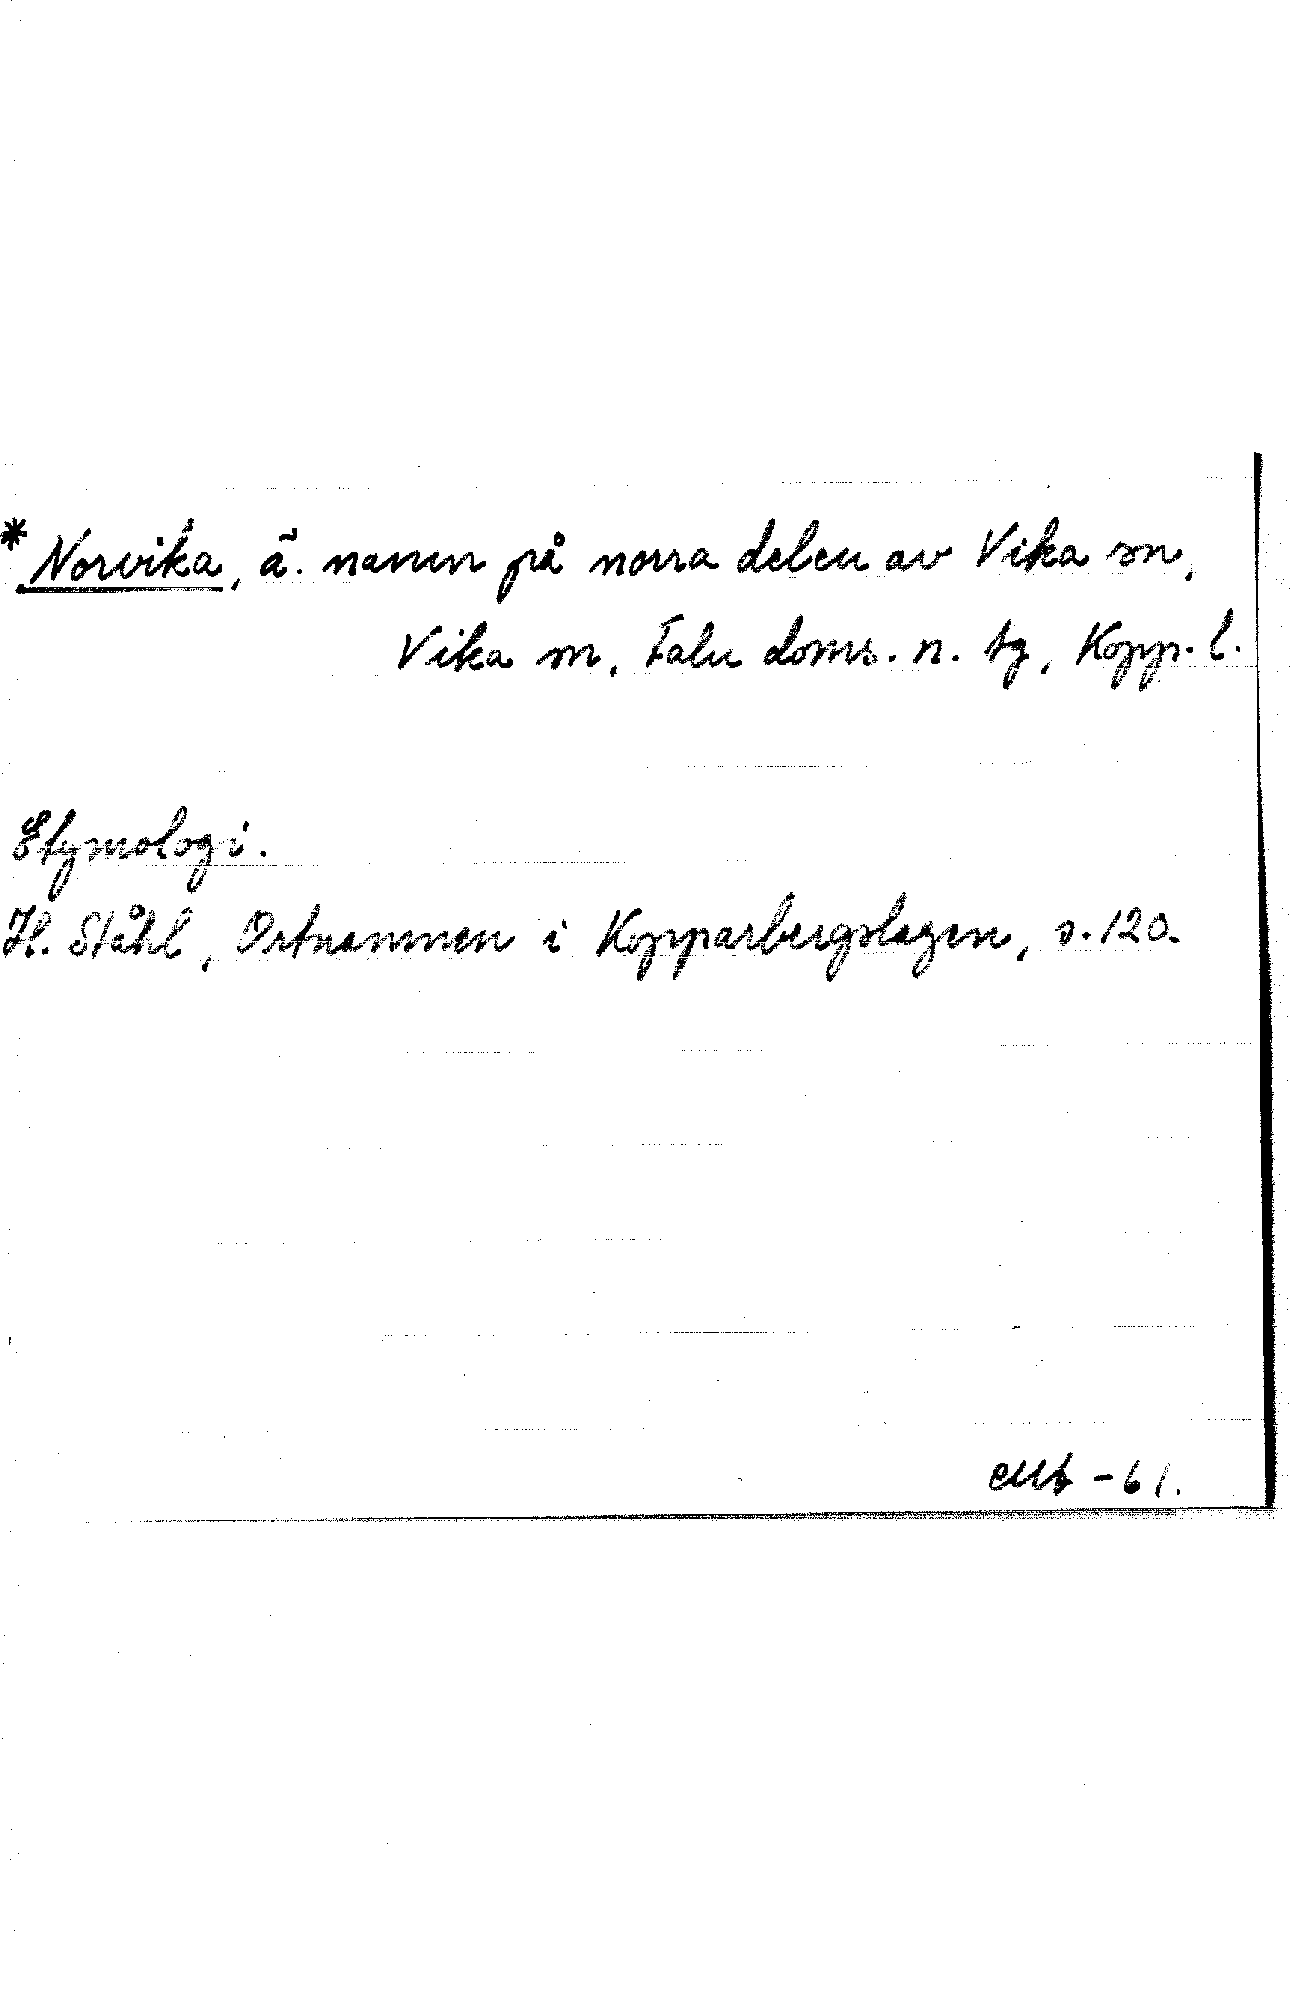 * Norvika, ä. namn på norra delen av Vika sn,
Vika sn, Falu doms. n. tg, Kopp. l.
Etymologi.
H. Ståhl, Ortnamnen i Kopparbergslagen, s. 120.
-61.